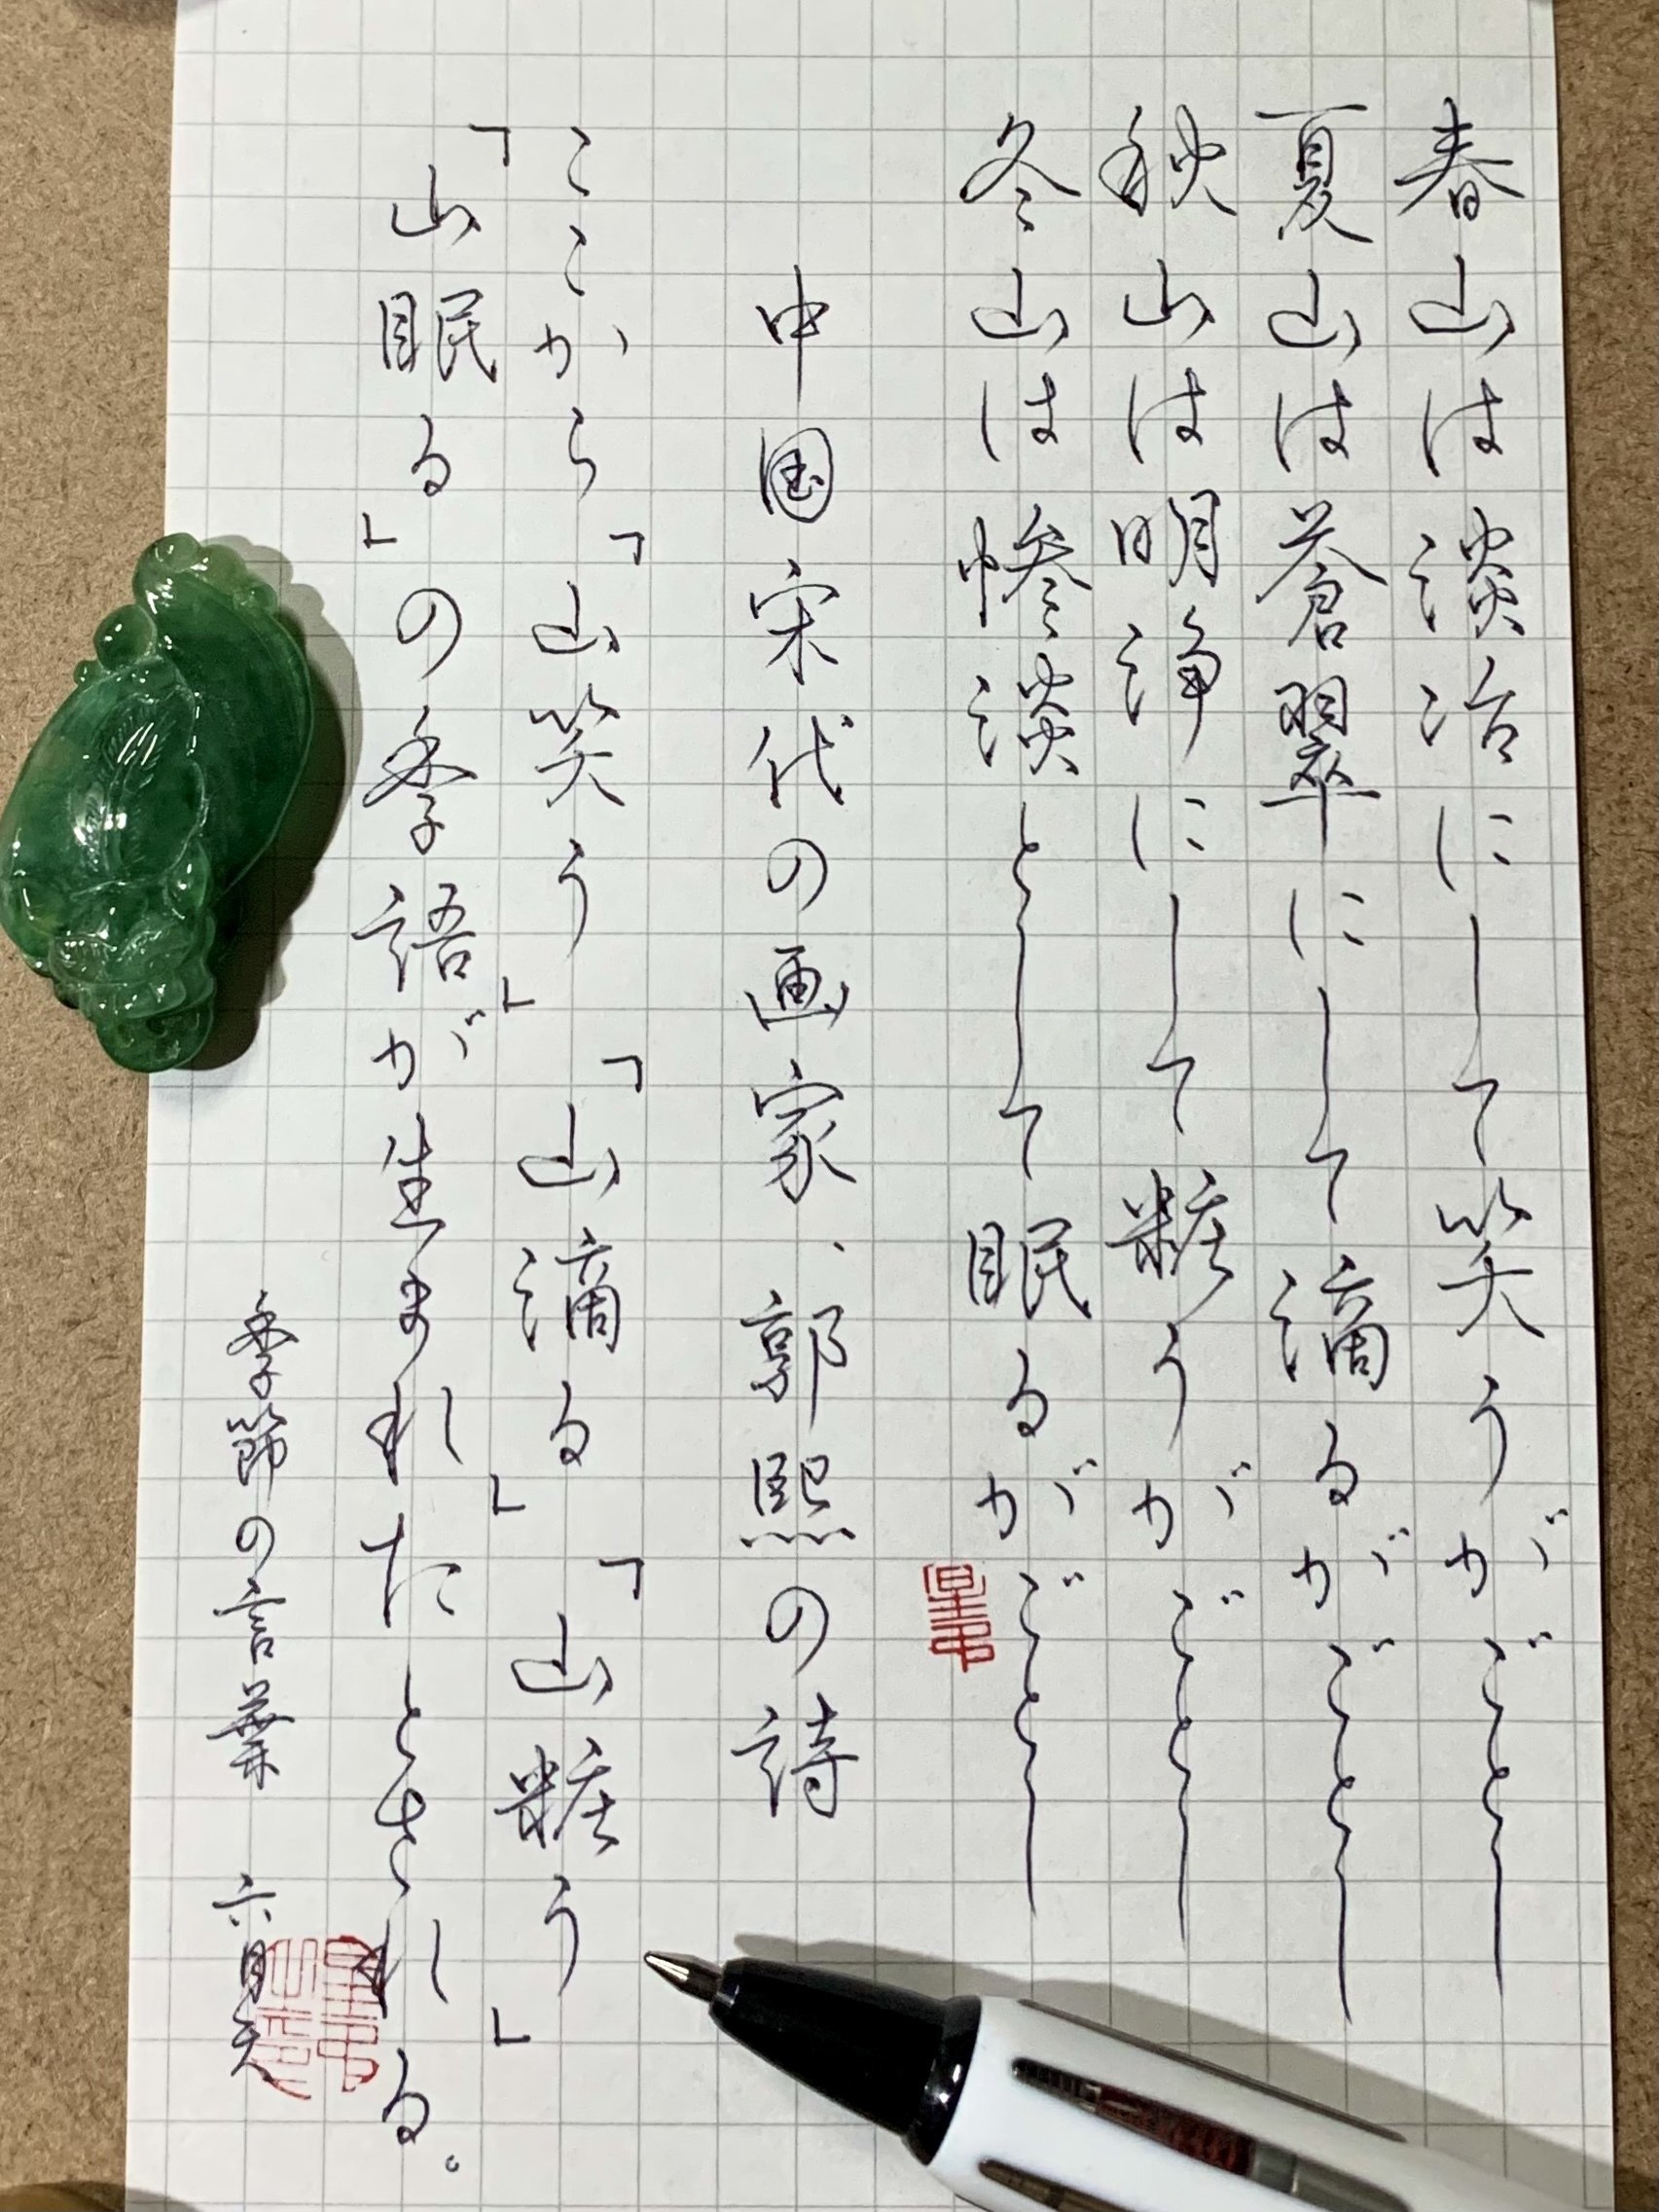 春山は淡冶にして笑うがごとし
夏山は蒼翠にして滴るがごとし
秋山は明浄にして粧うがごとし
冬山は惨淡として眠るがごとし
中国宋代の画家、郭熙の詩
ここから「山笑う」「山滴る」「山粧う」
「山眠る」の季語が生まれたとされる。
季節の言葉 六月天